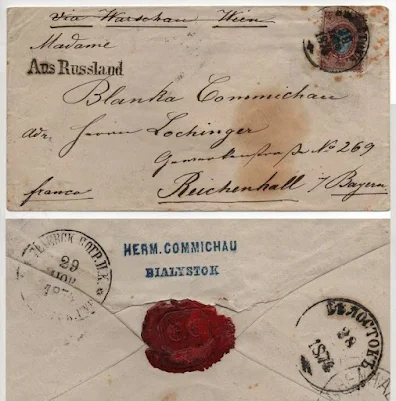 via Warschau Wien
Madame
Aus Russland
Blanka Commichau
adr. Herrn Lochinger
Gewerkenstraße No 269
franco
Reichenhall i/Bayern
HERM. COMMICHAU
BIALYSTOK
29
28